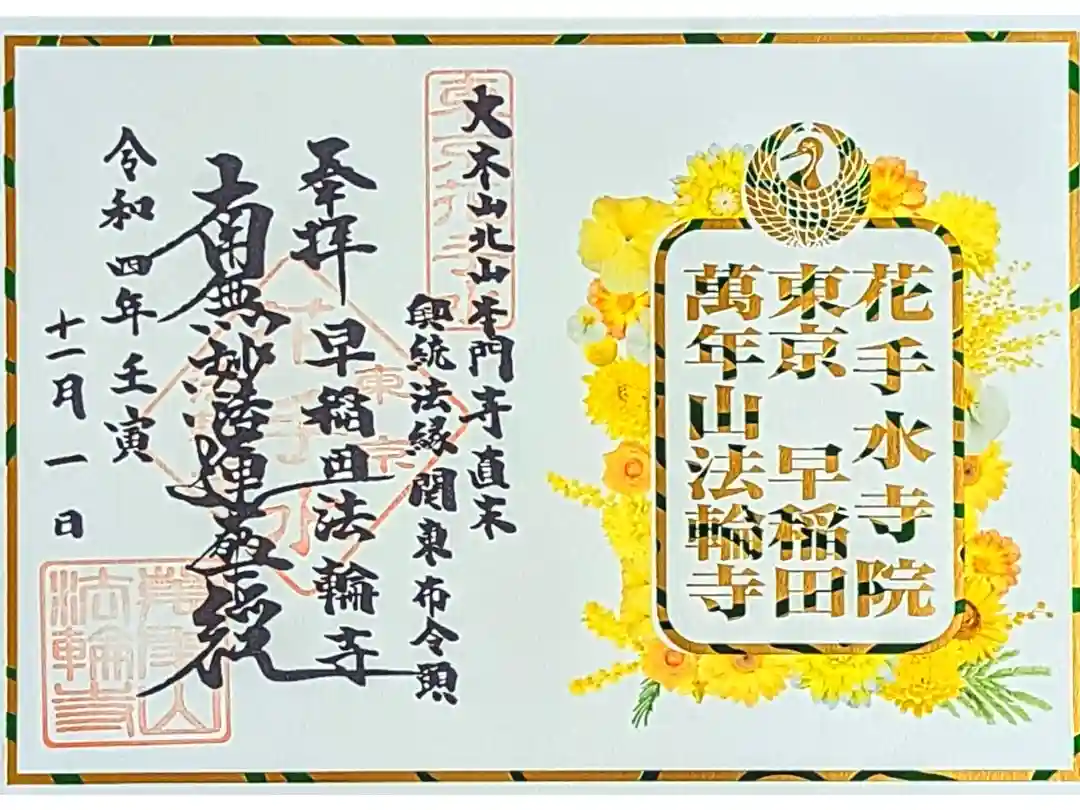 花手水寺院
東京 早稲田
萬年山法輪寺
大本山北山本門寺直末
興統法縁関東布令頭
奉拝
早稲田法輪寺
東京
花手水
南無妙法蓮華経
令和四年壬寅
十一月一日
萬年山
法輪寺